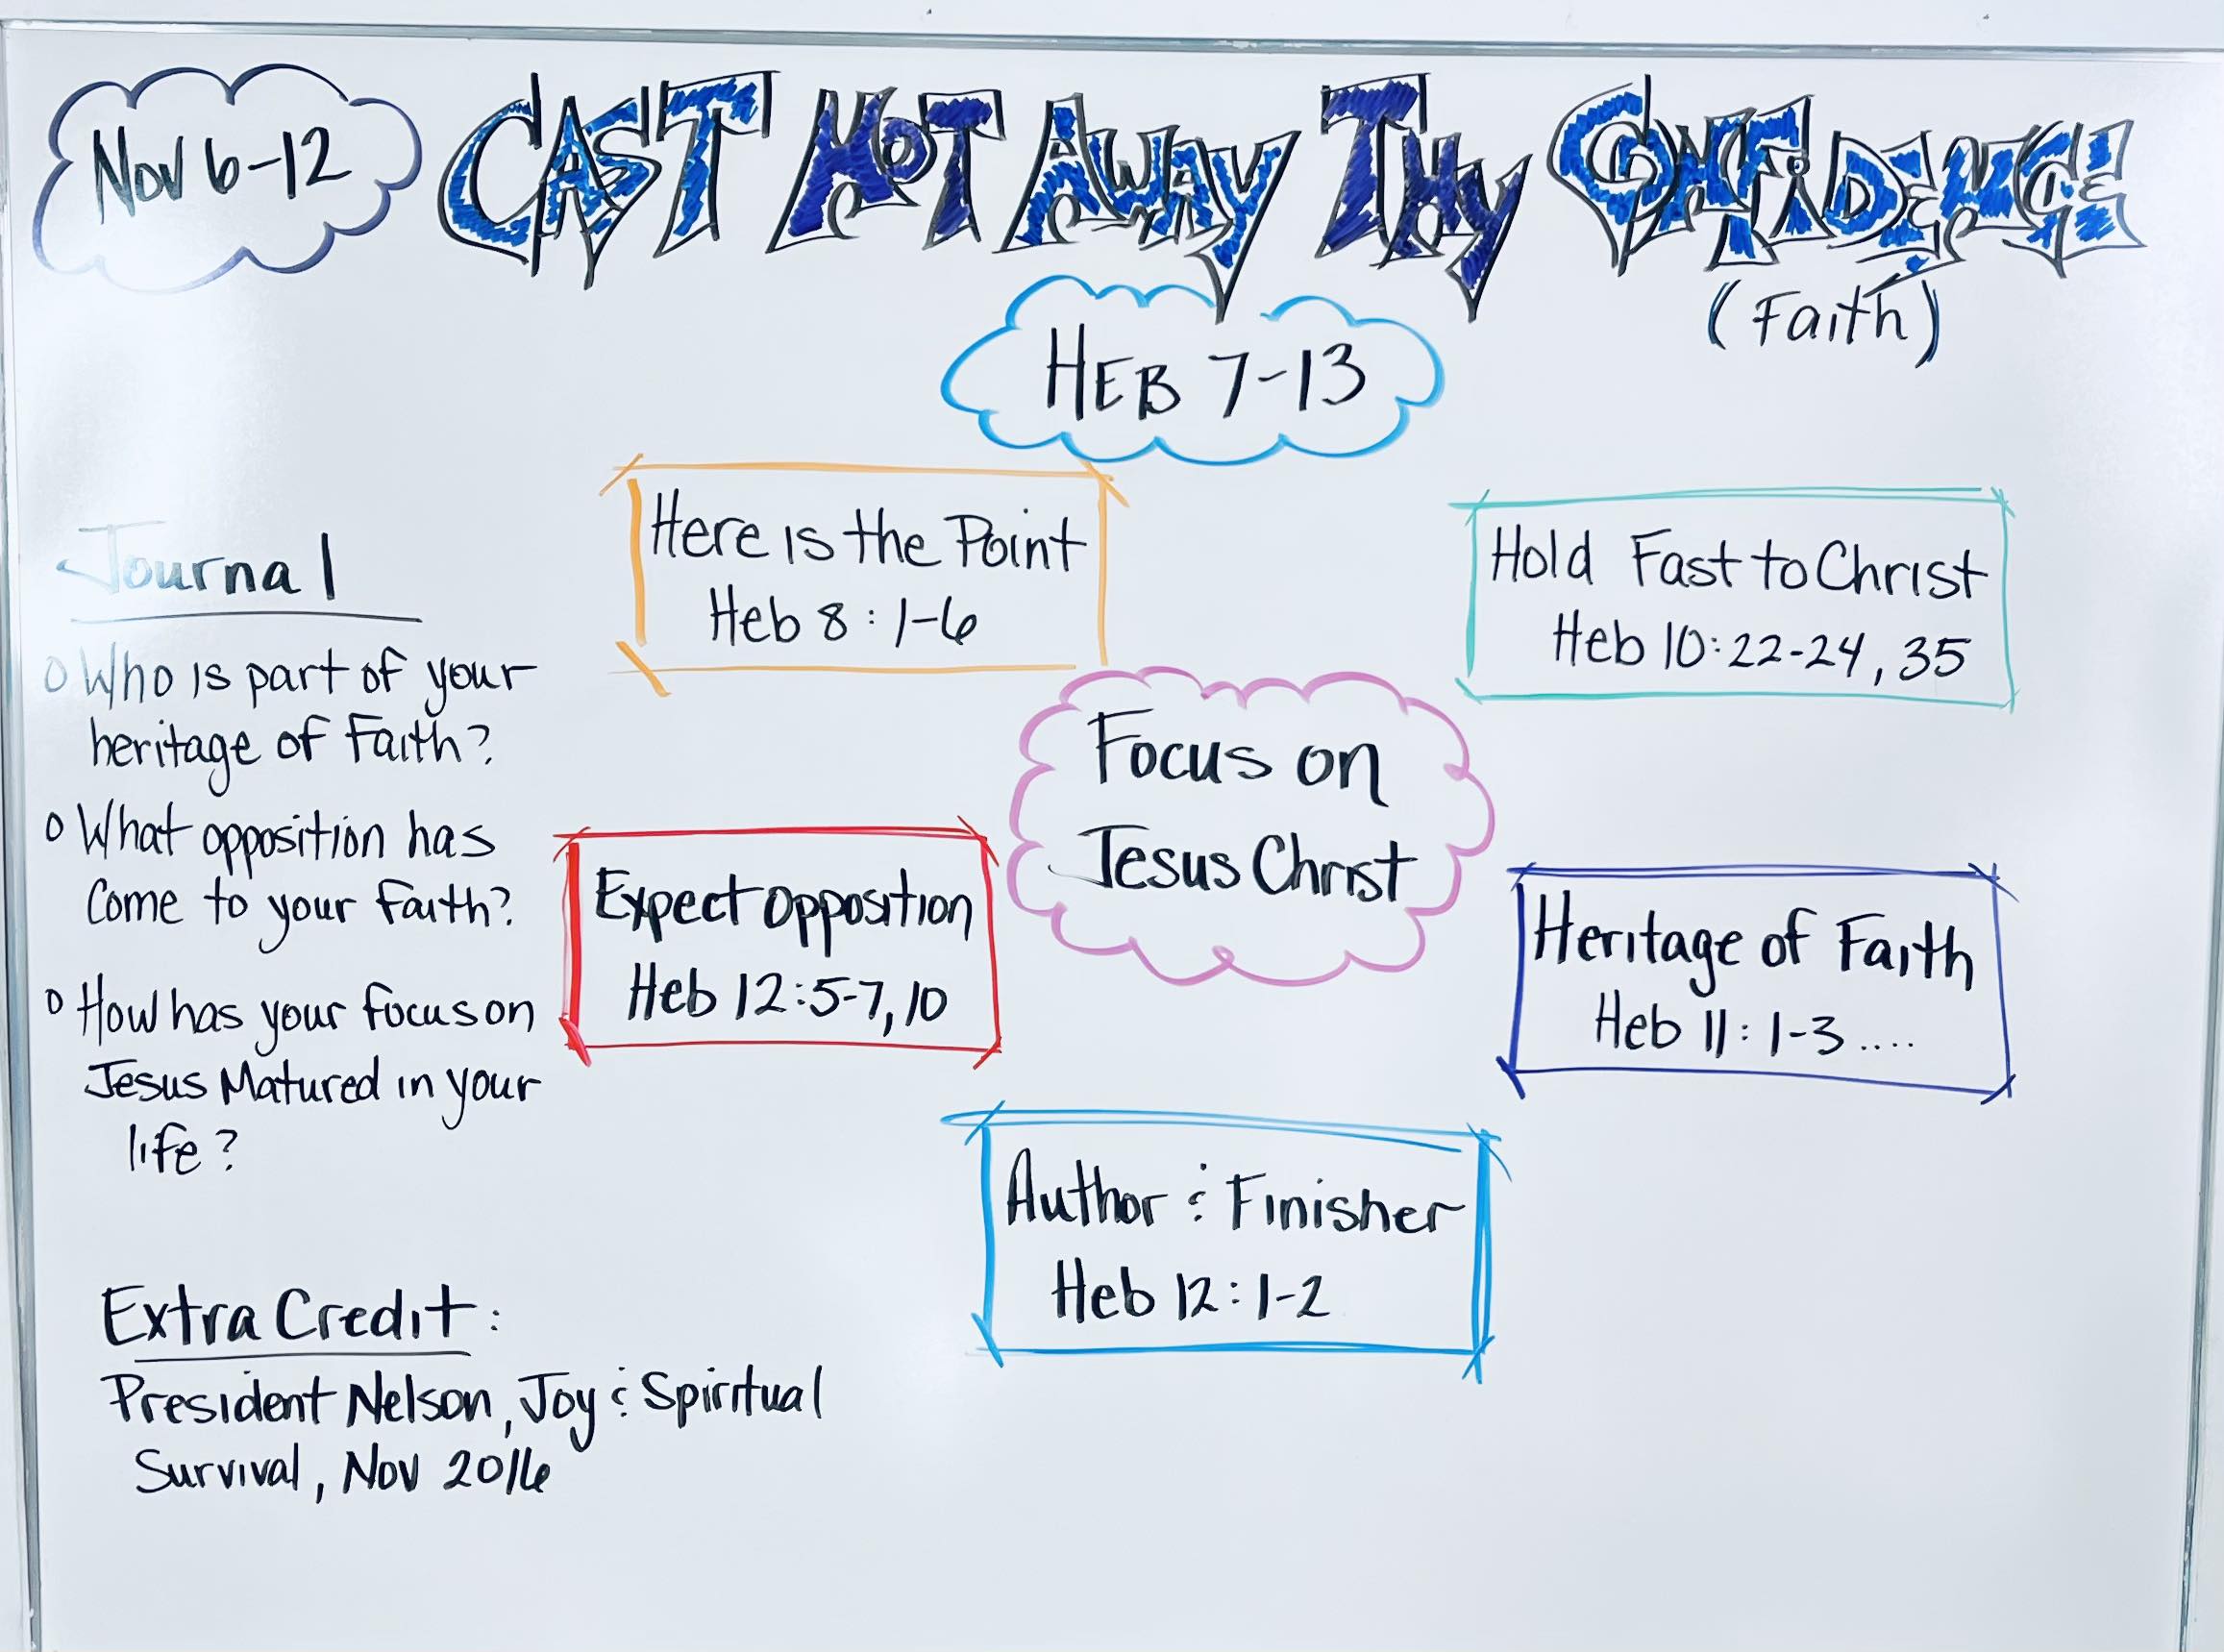 Nov 6-12
CAST NOT AWAY THY CONFiDENCE
(Faith)
HEB 7-13
Here is the Point
Heb 8:1-6
Hold Fast to Christ
Heb 10:22-24, 35
Focus on
Jesus Christ
Expect Opposition
Heb 12:5-7, 10
Heritage of Faith
Heb 11:1-3....
Author & Finisher
Heb 12:1-2
Journal
o Who is part of your
heritage of Faith?
o What opposition has
Come to your Faith?
o How has your focus on
Jesus Matured in your
life?
Extra Credit:
President Nelson, Joy & Spiritual
Survival, Nov 2016